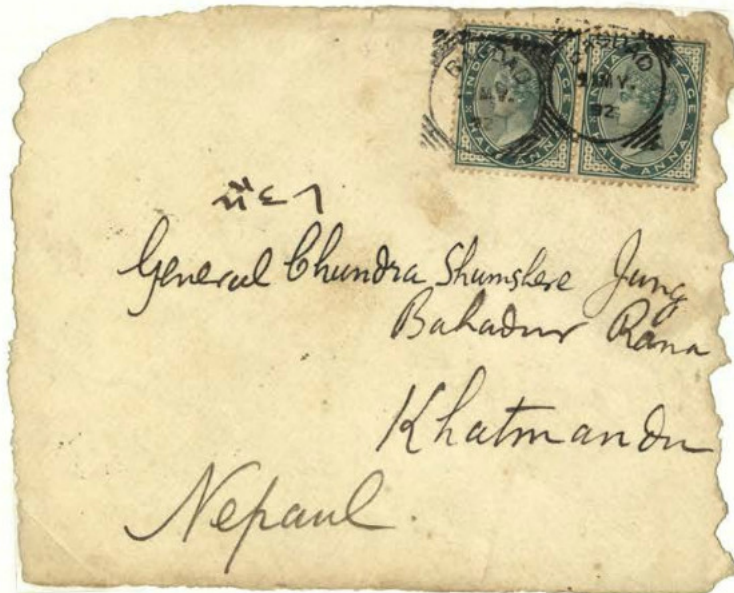 INDIA POSTAGE
HALF ANNA
INDIA POSTAGE
HALF ANNA
MY.
92
MY.
92
General Chundra Shumshere Jung
Bahadur Rana
Khatmandu
Nepaul